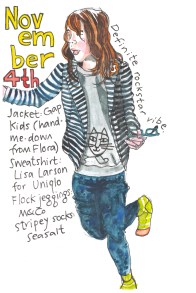 Nov
em
ber
4th
Definite rockstar vibe
Jacket: Gap
Kids (hand-
me-down
from Flora)
Sweatshirt:
Lisa Larson
for Uniqlo
Flock jeggings:
M&Co
stripey socks:
seasalt